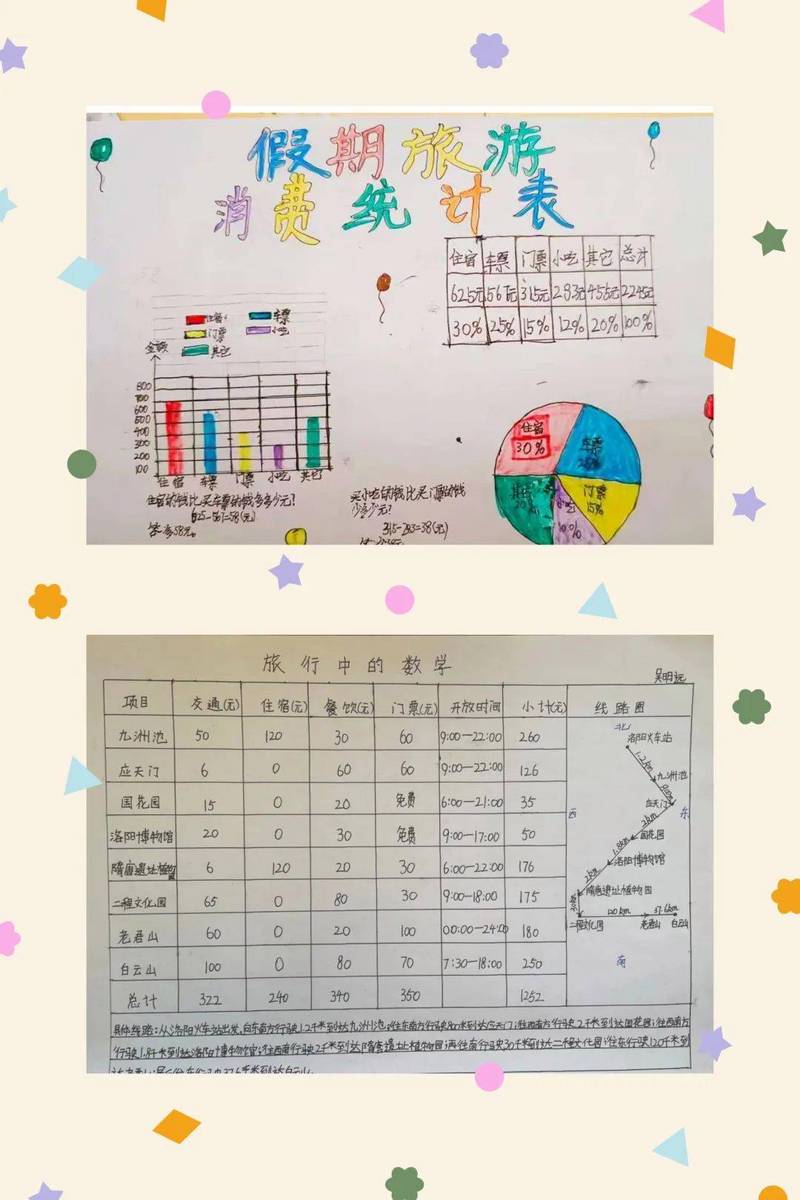 假期旅游
消费统计表
住宿 车票 门票 小吃 其它 总计
625元 567元 315元 293元 455元 2245元
30% 25% 15% 12% 20% 100%
住宿 车票
门票 小吃
其它
金额
800
700
600
500
400
300
200
100
住宿 车票 门票 小吃 其它
住宿的钱比买车票的钱多多少元?
625-567=58(元)
答:多58元。
买小吃的钱比买门票的钱
少多少元?
315-293=38(元)
住宿
30%
车票
门票
15%
小吃
10%
其它
20%
旅行中的数学
吴明远
项目 交通(元) 住宿(元) 餐饮(元) 门票(元) 开放时间 小计(元) 线路图
九洲池 50 120 30 60 9:00—22:00 260
应天门 6 0 60 60 9:00—22:00 126
国花园 15 0 20 免费 6:00—21:00 35
洛阳博物馆 20 0 30 免费 9:00—17:00 50
隋唐遗址植物园 6 120 20 30 6:00—22:00 176
二程文化园 65 0 80 30 9:00-18:00 175
老君山 60 0 20 100 00:00—24:00 180
白云山 100 0 80 70 7:30-18:00 250
总计 322 240 340 350 1252
北
洛阳火车站
1.2km
九洲池
800m
应天门
西
东
2km
国花园
1.8km
洛阳博物馆
2km
隋唐遗址植物园
30km
120km
37.6km
二程文化园
老君山
白云山
南
具体线路:从洛阳火车站出发,向东南方行驶1.2千米到达九洲池;往东南方行驶800米到达应天门;往西南方行驶2千米到达国花园;往西南方
行驶1.8千米到达洛阳博物馆;往西南行驶2千米到达隋唐遗址植物园;再往南行驶30千米到达二程文化园;往东行驶120千米到